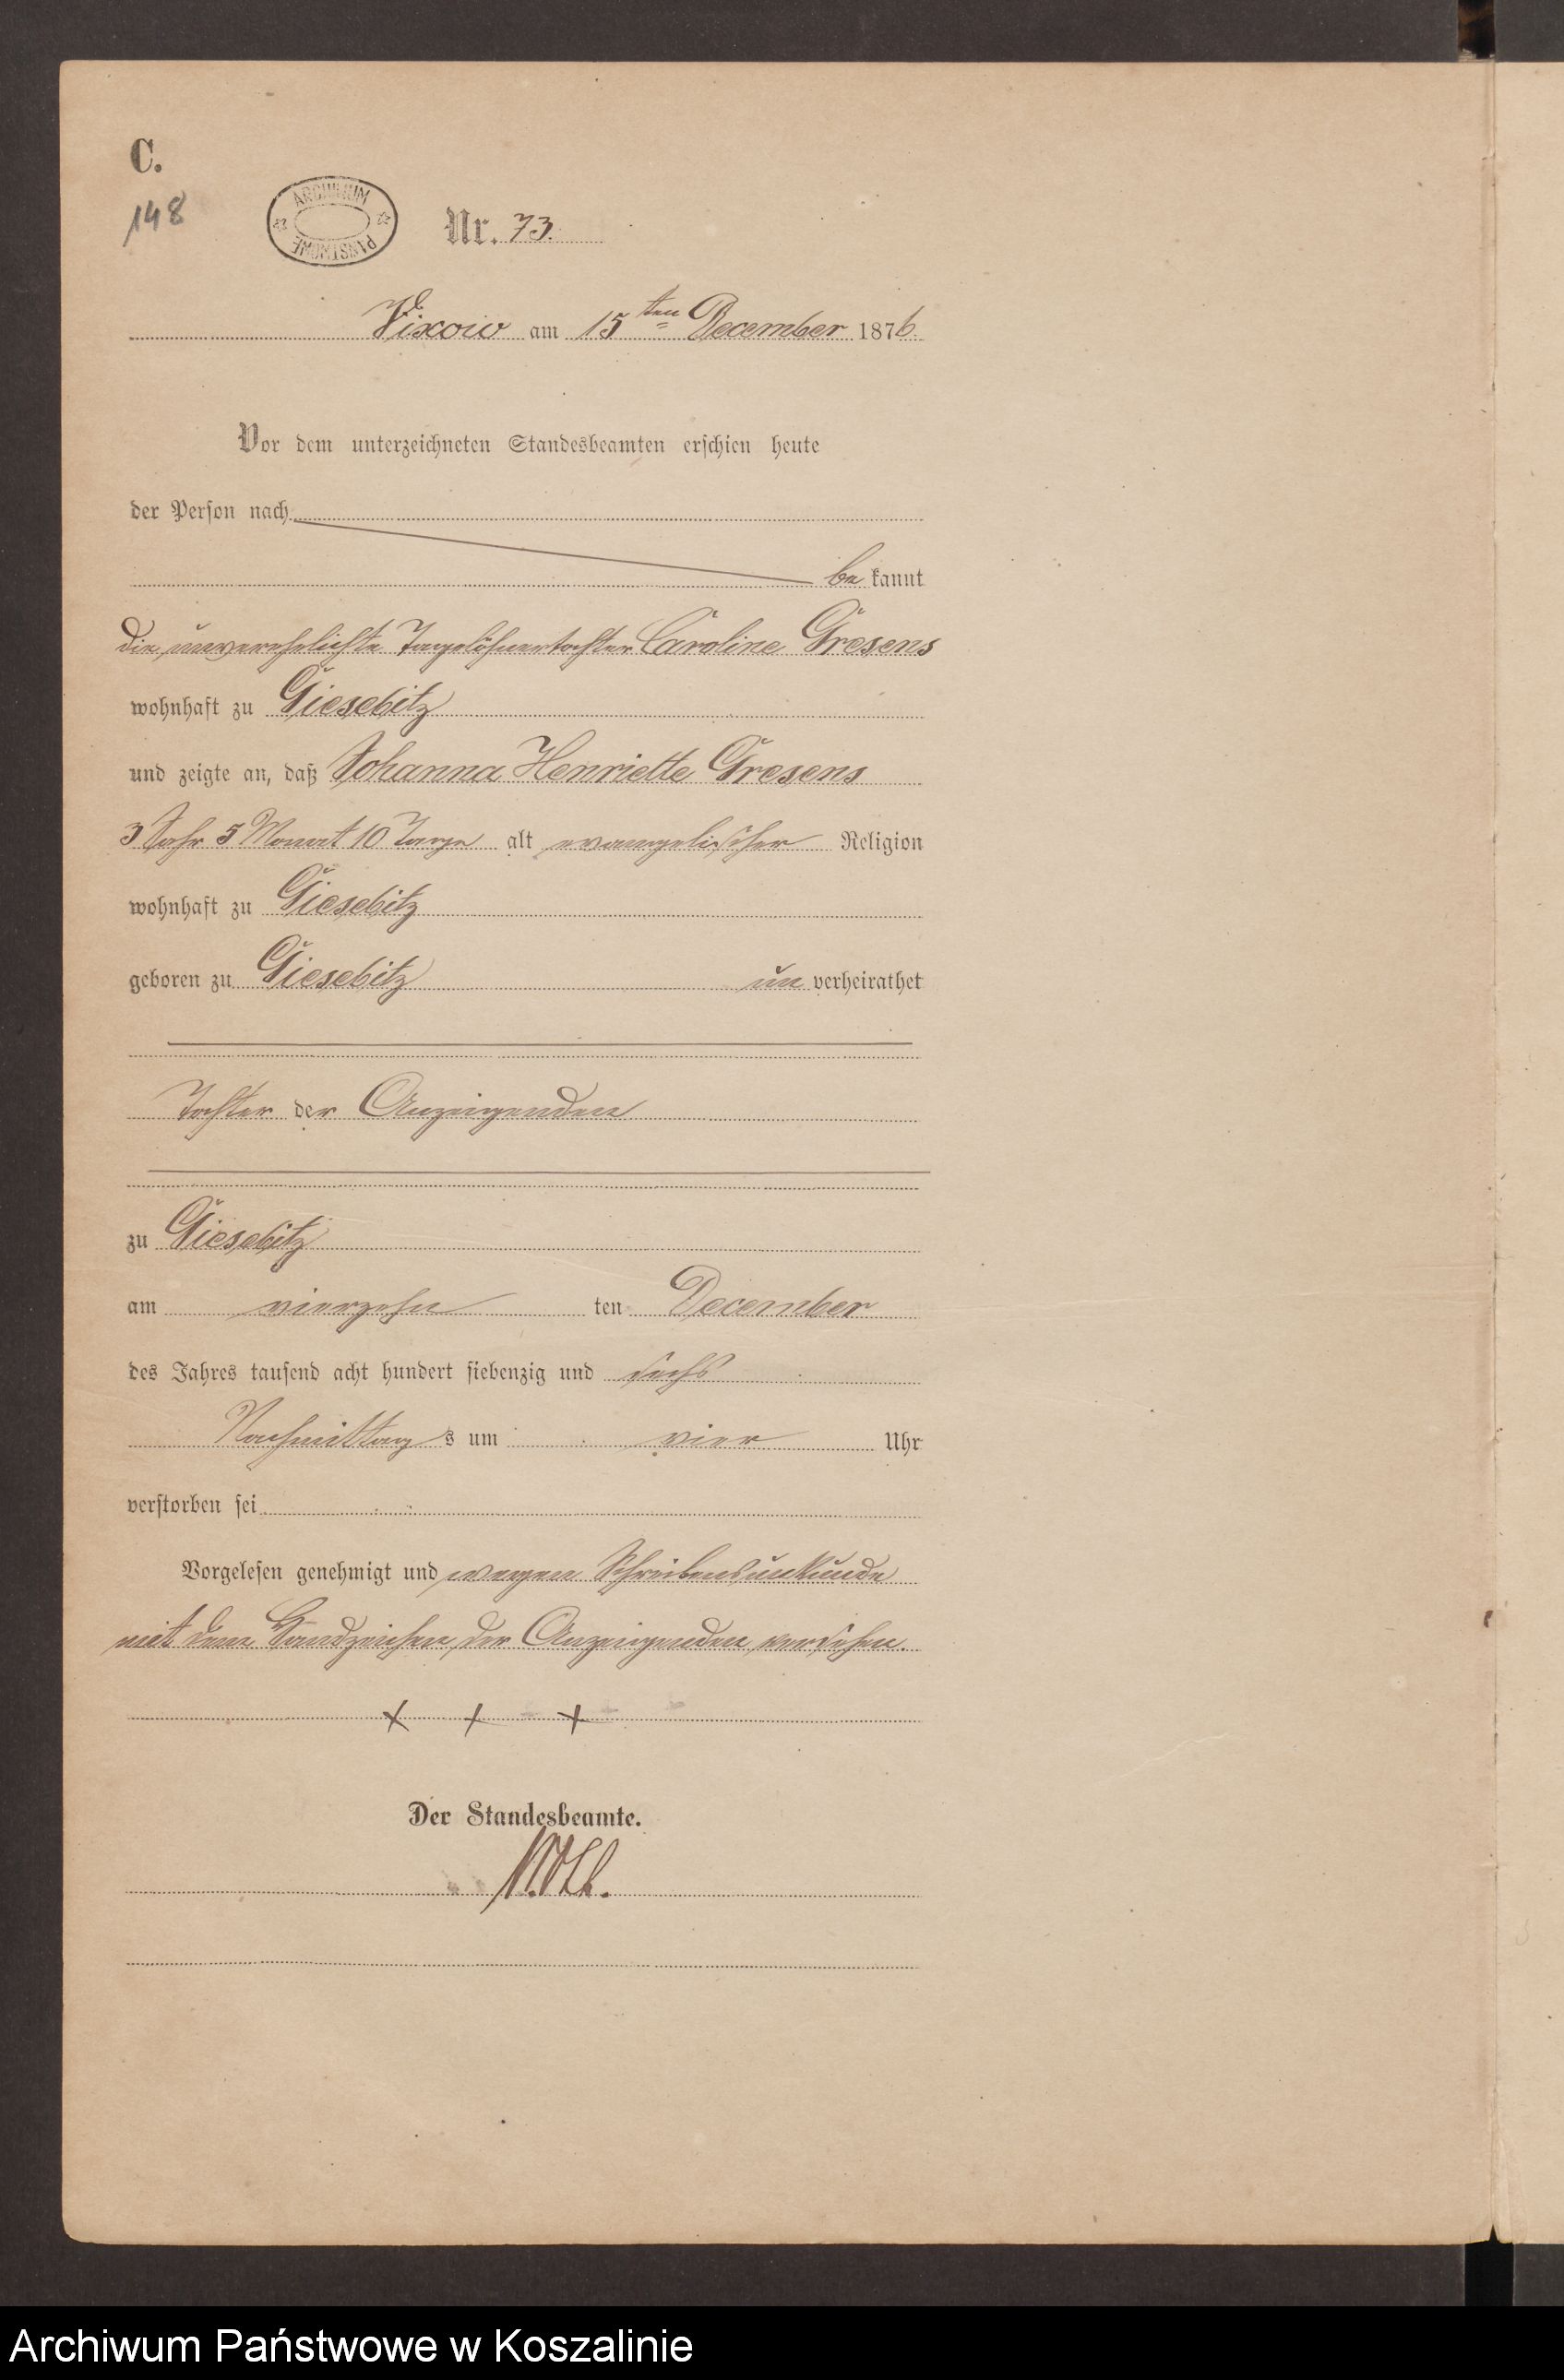 C.
148
ARCHIWUM PAŃSTWOWE
Nr. 73.
Vixow am 15ten December 1876.
Vor dem unterzeichneten Standesbeamten erschien heute
der Person nach
be kannt
die unverehelichte Tagelöhnertochter Caroline Gresens
wohnhaft zu Giesebitz
und zeigte an, daß Johanna Henriette Gresens
3 Jahr 5 Monat 10 Tage alt evangelischer Religion
wohnhaft zu Giesebitz
geboren zu Giesebitz un verheirathet
Tochter der Anzeigenden
zu Giesebitz
am vierzehn ten December
des Jahres tausend acht hundert siebenzig und sechs
Nachmittag s um vier Uhr
verstorben sei
Vorgelesen genehmigt und wegen Schreibensunkunde
mit dem Handzeichen der Anzeigenden versehen.
+ + +
Der Standesbeamte.
Archiwum Państwowe w Koszalinie